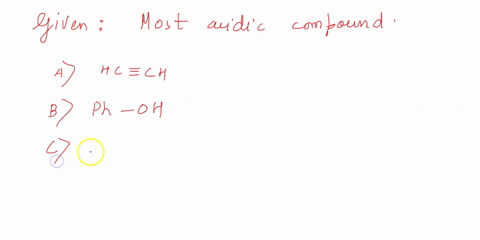 Given: Most acidic compound.
A) HC≡CH
B) Ph-OH
C)